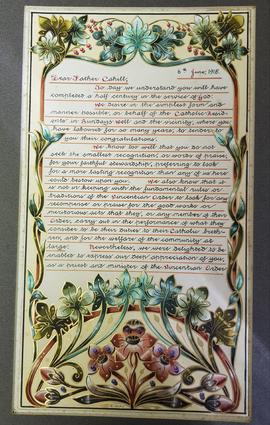 6th June, 1918.
Dear Father Cahill,
To day we understand you will have
completed a half century in the service of God.
We desire in the simplest form and
manner possible, on behalf of the Catholic Resid-
ents in Hundays Well and the vicinity, where you
have laboured for so many years, to tender to
you their congratulations.
We know too well that you do not
seek the smallest recognition, or words of praise,
for your faithful stewardship, preferring to look
for a more lasting recognition than any of us here
could bestow upon you. We also know that it
is not in keeping with the fundamental rules or
traditions of the Vincentian Order to look for any
recompense or praise for the good works or
meritorious acts that they, or any member of their
Order, carry out in the performance of what they
consider to be their duties to their Catholic breth-
ren, and for the welfare of the community at
large. Nevertheless, we were delighted to be
enabled to express our deep appreciation of you,
as a priest and minister of the Vincentian Order